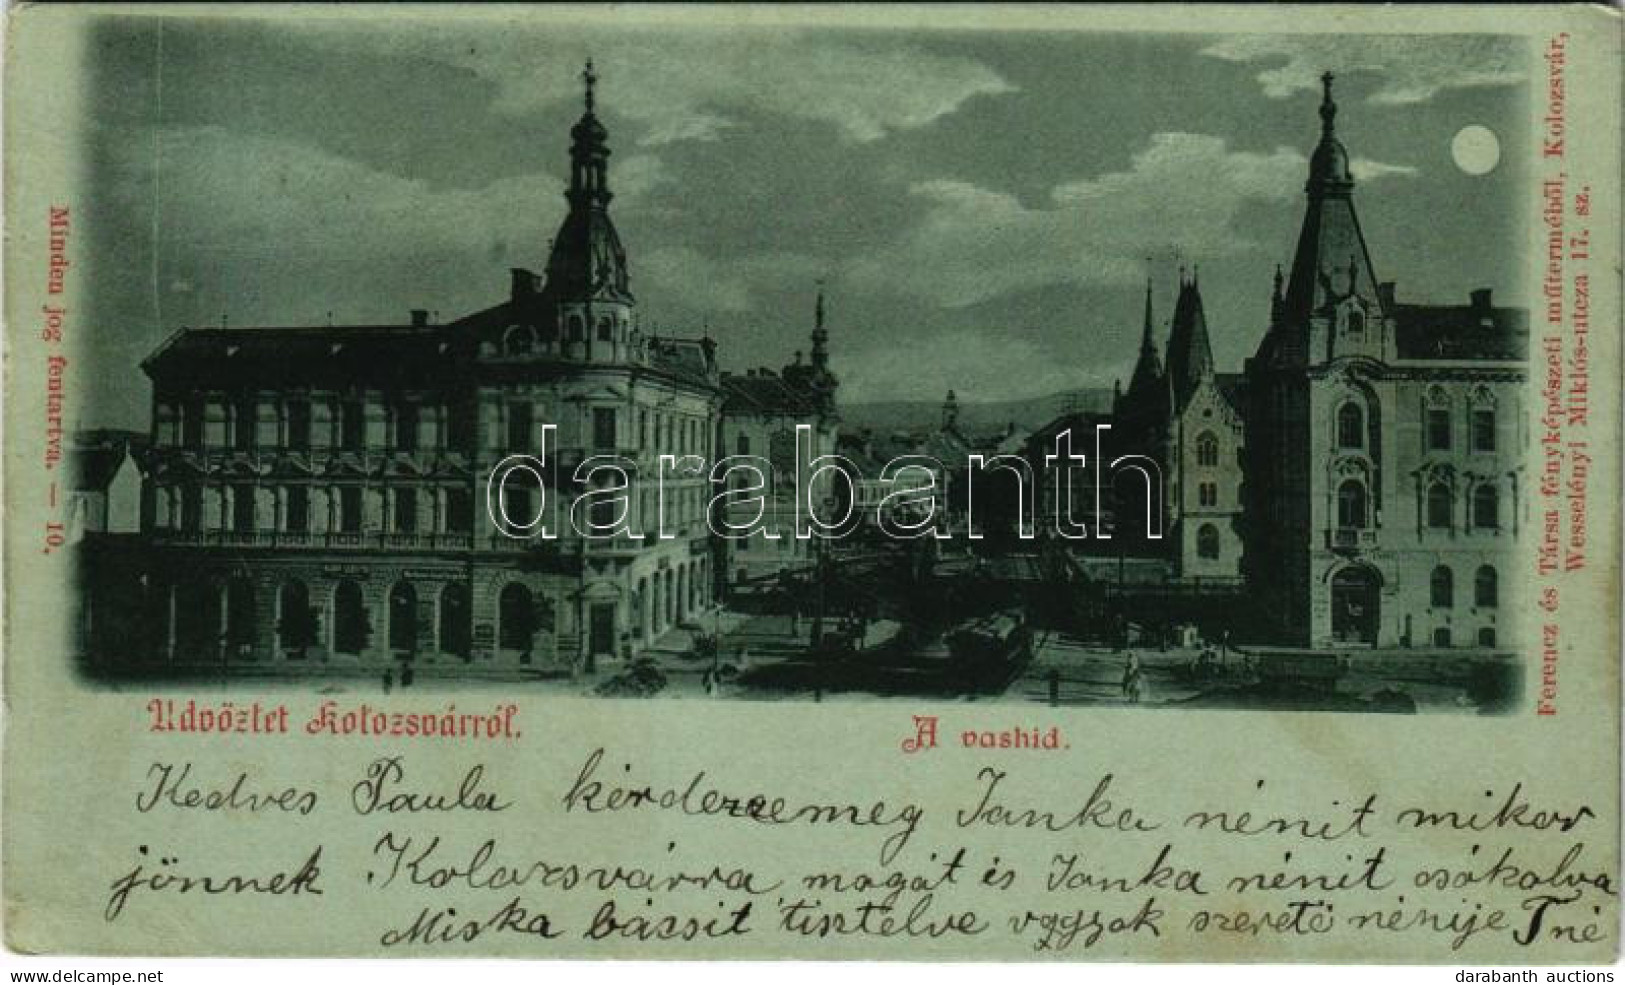 Minden jog fentartva. — 10.
Ferencz és Társa fényképészeti műterméből, Kolozsvár,
Wesselényi Miklós-utcza 17. sz.
darabanth
Üdvözlet Kolozsvárról.
A vashid.
Kedves Paula kérdezze meg Janka nénit mikor
jönnek Kolozsvárra magát és Janka nénit csókolva
Miska bácsit tisztelve vagyok szerető nénije Tné
www.delcampe.net
darabanth auctions